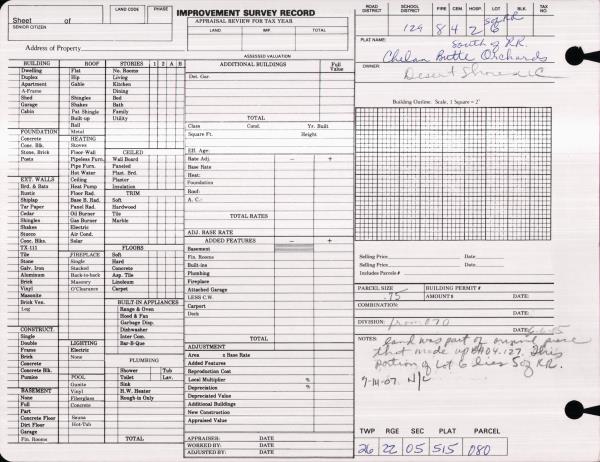 Sheet of
SENIOR CITIZEN
LAND CODE PHASE
IMPROVEMENT SURVEY RECORD
APPRAISAL REVIEW FOR TAX YEAR
LAND IMP. TOTAL
ASSESSED VALUATION
Address of Property
BUILDING ROOF STORIES 1 2 A B
Dwelling Flat No. Rooms
Duplex Hip Living
Apartment Gable Kitchen
A-Frame Dining
Shed Shingles Bed
Garage Shakes Bath
Cabin Pat Shingle Family
Built-up Utility
Roll
FOUNDATION Metal
Concrete HEATING
Conc. Blk. Stoves CEILED
Stone, Brick Floor Wall
Posts Pipeless Furn. Wall Board
Pipe Furn. Paneled
Hot Water Plast. Brd.
EXT. WALLS Ceiling Plaster
Brd. & Bats Heat Pump Insulation
Rustic Floor Rad. TRIM
Shiplap Base B. Rad. Soft
Tar Paper Panel Rad. Hardwood
Cedar Oil Burner Tile
Shingles Gas Burner Marble
Shakes Electric
Stucco Air Cond.
Conc. Blks. Solar
TX-111 FLOORS
Tile FIREPLACE Soft
Stone Single Hard
Galv. Iron Stacked Concrete
Aluminum Back-to-back Asp. Tile
Brick Masonry Linoleum
Vinyl O'Clearance Carpet
Masonite
Brick Ven. BUILT-IN APPLIANCES
Log Range & Oven
Hood & Fan
Garbage Disp.
CONSTRUCT. Dishwasher
Single Inter Com.
Double LIGHTING Bar-B-Que
Frame Electric
Brick None PLUMBING
Concrete
Concrete Blk. Shower Tub
Pumice POOL Toilet Lav.
Gunite Sink
BASEMENT Vinyl H.W. Heater
None Fiberglass Rough-in Only
Full Concrete
Part
Concrete Floor Sauna
Dirt Floor Hot-Tub
Garage
Fin. Rooms TOTAL
ADDITIONAL BUILDINGS Full Value
Det. Gar.
TOTAL
Class Cond. Yr. Built
Square Ft. Height
Eff. Age:
Rate Adj. − +
Base Rate
Heat:
Foundation
Roof:
A. C.:
TOTAL RATES
ADJ. BASE RATE
ADDED FEATURES − +
Basement
Fin. Rooms
Built-ins
Plumbing
Fireplace
Attached Garage
LESS C.W.
Carport
Deck
TOTAL
ADJUSTMENT
Area x Base Rate
Added Features
Reproduction Cost
Local Multiplier %
Depreciation %
Depreciated Value
Additional Buildings
New Construction
Appraised Value
APPRAISER: DATE
WORKED BY: DATE
ADJUSTED BY: DATE
ROAD DISTRICT SCHOOL DISTRICT FIRE CEM. HOSP. LOT BLK. TAX NO
129 8 4 2 6
PLAT NAME: South of RR.
Chelan Butte Orchards
OWNER: Desert Shores LLC
Building Outline. Scale, 1 Square = 2'
Selling Price Date
Selling Price Date
Includes Parcels #
PARCEL SIZE BUILDING PERMIT #
.75 AMOUNT $ DATE:
COMBINATION:
DATE:
DIVISION: from 070
DATE: 6-6-05
NOTES: Land was part of original parcel
that made up BHO4.127. This
portion of Lot 6 lies S of RR.
7-14-07. N/C
TWP RGE SEC PLAT PARCEL
26 22 05 515 080